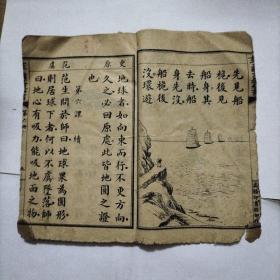 先見船
桅後見
船身其
去時船
身先沒
船桅後
沒環遊
更
原
地球者、如向東而行、不更方向、
久之必回原處、此皆地圓之證
也
第六課 續
范
虞
范生問於師曰、地球果為圓形、
則居球下者、何以不虞墜落、師
曰、地心有吸力、能吸地面之物、